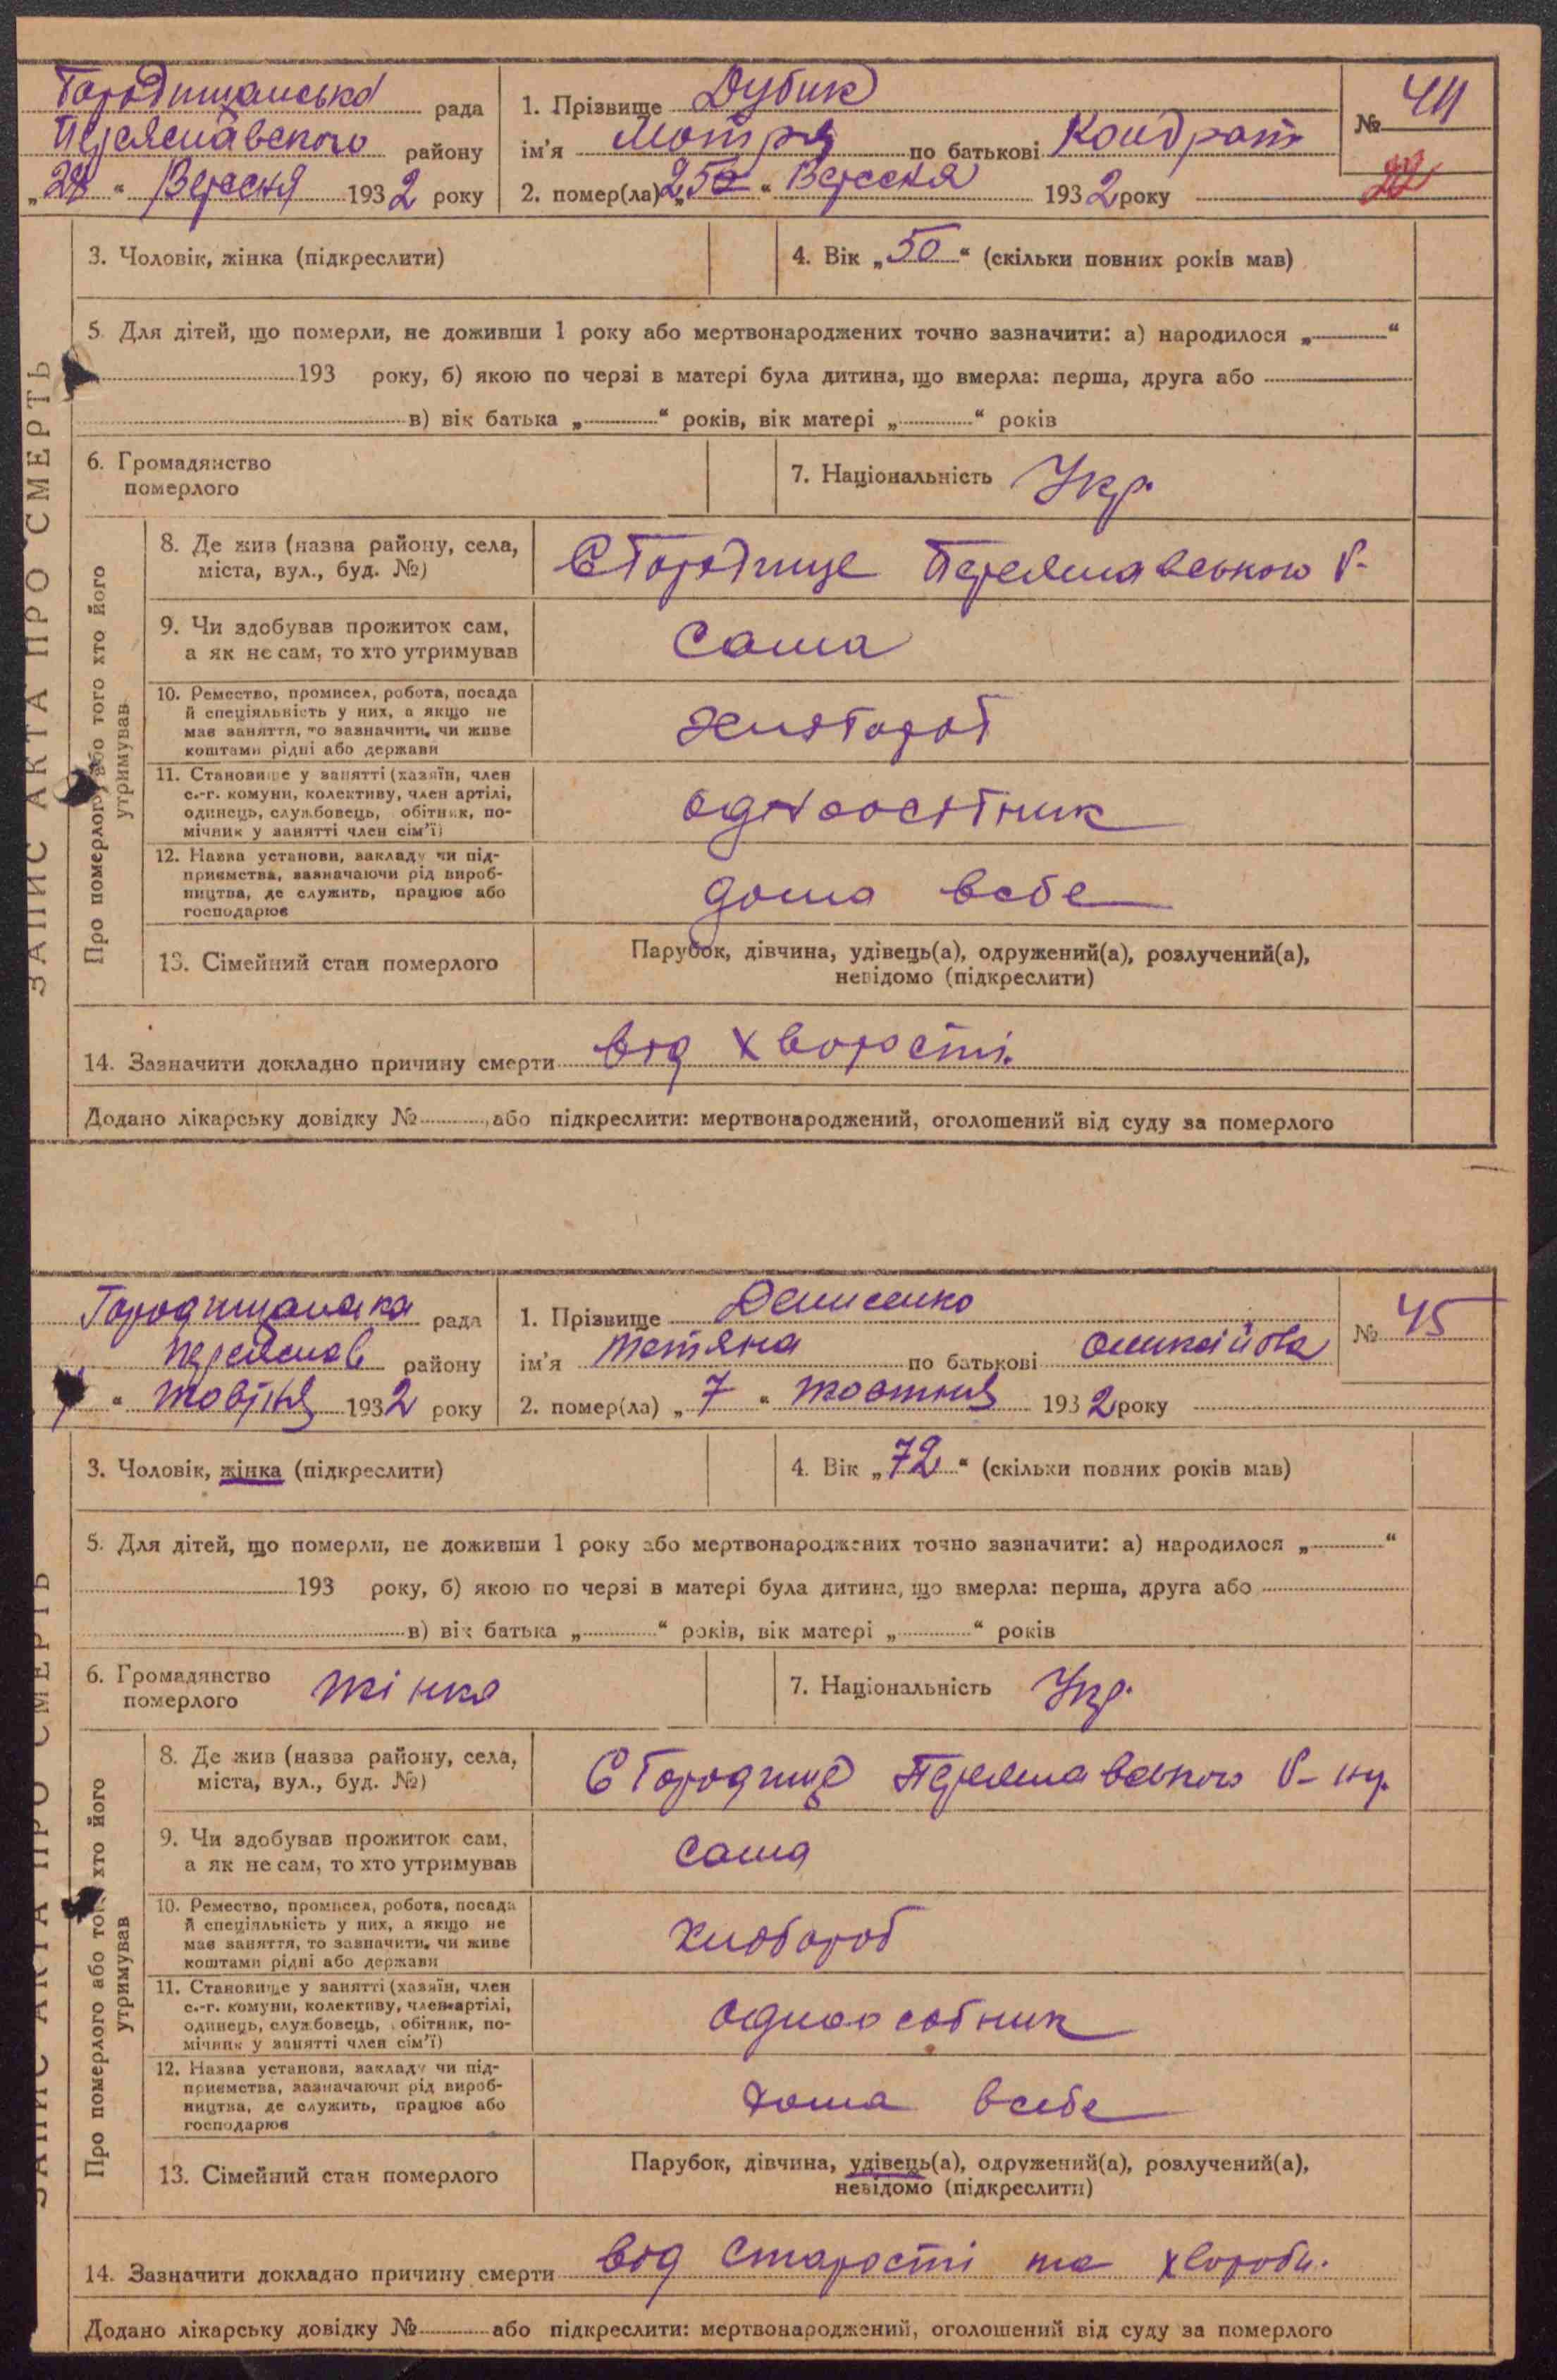 Городищанська рада
Переяславского району
„28“ Вересня 1932 року
1. Прізвище Дубик
ім'я Мотря по батькові Кондрат
2. помер(ла) „25“ Вересня 1932 року
№ 44
22
ЗАПИС АКТА ПРО СМЕРТЬ
3. Чоловік, жінка (підкреслити)
4. Вік „50“ (скільки повних років мав)
5. Для дітей, що померли, не доживши 1 року або мертвонароджених точно зазначити: а) народилося „ “
193 року, б) якою по черзі в матері була дитина, що вмерла: перша, друга або
в) вік батька „ “ років, вік матері „ “ років
6. Громадянство
померлого
7. Національність Укр.
Про померлого або того хто його
утримував
8. Де жив (назва району, села,
міста, вул., буд. №)
С Городище Переяславського Р-
9. Чи здобував прожиток сам,
а як не сам, то хто утримував
Сама
10. Ремество, промисел, робота, посада
й спеціяльність у них, а якщо не
має заняття, то зазначити, чи живе
коштами рідні або держави
Хлібороб
11. Становище у занятті (хазяїн, член
с.-г. комуни, колективу, член артілі,
одинець, службовець, обітник, по-
мічник у занятті член сім'ї)
одноосібник
12. Назва установи, закладу чи під-
приємства, зазначаючи рід вироб-
ництва, де служить, працює або
господарює
дома всебе
13. Сімейний стан померлого
Парубок, дівчина, удівець(а), одружений(а), розлучений(а),
невідомо (підкреслити)
14. Зазначити докладно причину смерти від хворости.
Додано лікарську довідку № , або підкреслити: мертвонароджений, оголошений від суду за померлого
Городищанська рада
Переяслав району
“ Жовтня 1932 року
1. Прізвище Денисенко
ім'я Тетяна по батькові
2. помер(ла) „7“ Жовтня 1932 року
№ 45
ЗАПИС АКТА ПРО СМЕРТЬ
3. Чоловік, жінка (підкреслити)
4. Вік „72“ (скільки повних років мав)
5. Для дітей, що померли, не доживши 1 року або мертвонароджених точно зазначити: а) народилося „ “
193 року, б) якою по черзі в матері була дитина, що вмерла: перша, друга або
в) вік батька „ “ років, вік матері „ “ років
6. Громадянство
померлого
Жінка
7. Національність Укр.
Про померлого або того хто його
утримував
8. Де жив (назва району, села,
міста, вул., буд. №)
С Городище Переяславського Р-ну.
9. Чи здобував прожиток сам,
а як не сам, то хто утримував
Сама
10. Ремество, промисел, робота, посада
й спеціяльність у них, а якщо не
має заняття, то зазначити, чи живе
коштами рідні або держави
Хлібороб
11. Становище у занятті (хазяїн, член
с.-г. комуни, колективу, член артілі,
одинець, службовець, обітник, по-
мічник у занятті член сім'ї)
одноособник
12. Назва установи, закладу чи під-
приємства, зазначаючи рід вироб-
ництва, де служить, працює або
господарює
дома всебе
13. Сімейний стан померлого
Парубок, дівчина, удівець(а), одружений(а), розлучений(а),
невідомо (підкреслити)
14. Зазначити докладно причину смерти від старости та хвороби.
Додано лікарську довідку № або підкреслити: мертвонароджений, оголошений від суду за померлого